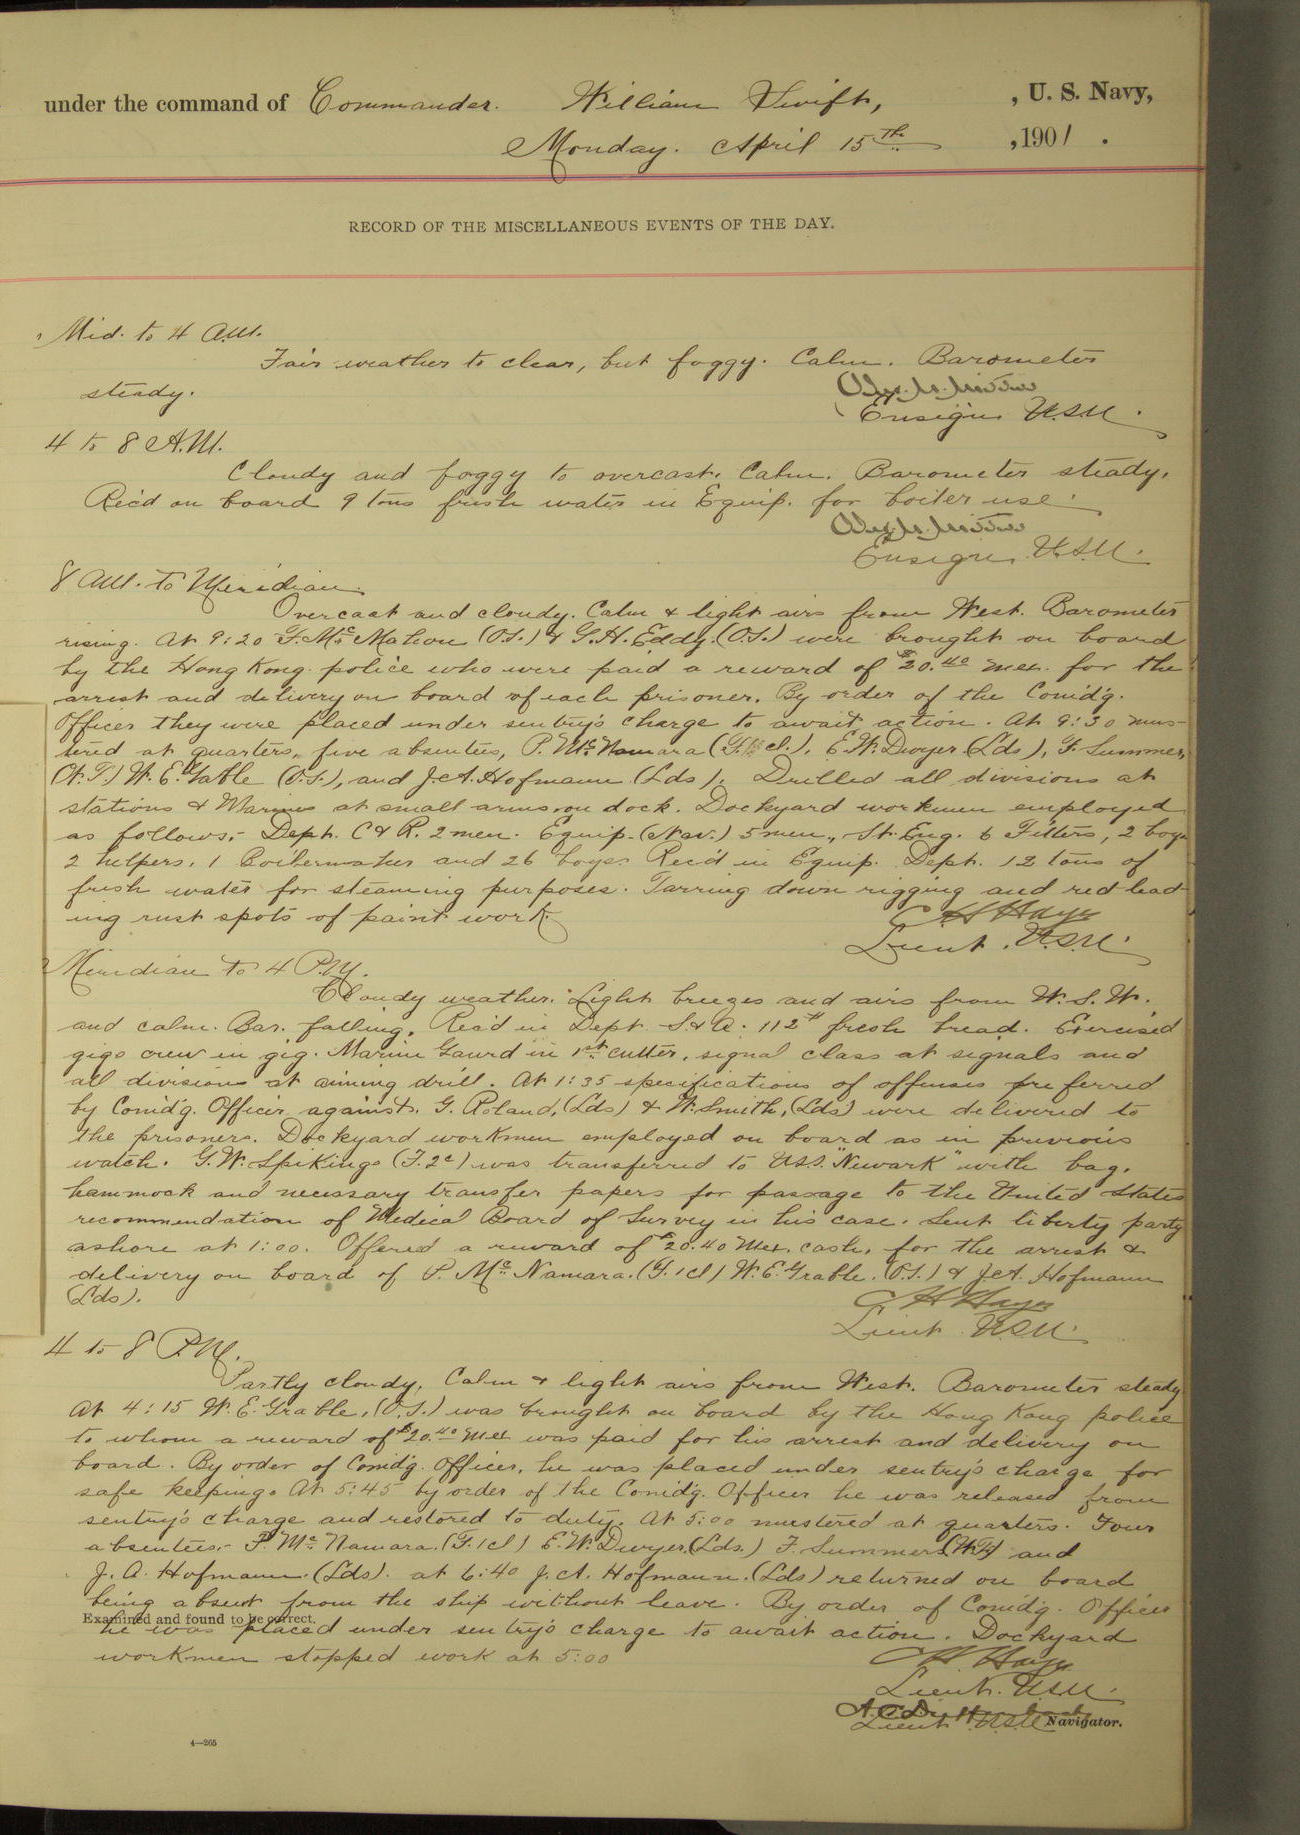 under the command of Commander. William Swift, , U. S. Navy,
Monday. April 15th , 1901 .
RECORD OF THE MISCELLANEOUS EVENTS OF THE DAY.
Mid. to 4 A.M.
Fair weather to clear, but foggy. Calm. Barometer
steady.
Ensign U.S.N.
4 to 8 A.M.
Cloudy and foggy to overcast. Calm. Barometer steady.
Rec'd on board 9 tons fresh water in Equip. for boiler use.
Ensign U.S.N.
8 A.M. to Meridian.
Overcast and cloudy. Calm & light airs from West. Barometer
rising. At 9:20 F. McMahon (O.S.) & G.H. Eddy. (O.S.) were brought on board
by the Hong Kong police who were paid a reward of $20.40 Mex. for the
arrest and delivery on board of each prisoner. By order of the Comd'g.
Officer they were placed under sentry's charge to await action. At 9:30 mus-
tered at quarters, five absentees, P. McNamara (F.1cl.), E.W. Dwyer (Lds), F. Summers,
(W.T.) W.E. Grable (O.S.), and J.A. Hofmann (Lds). Drilled all divisions at
stations & Marines at small arms on dock. Dockyard workmen employed
as follows:- Dept. C & R. 2 men. Equip. (Nav.) 5 men, St. Eng. 6 Fitters, 2 boys
2 helpers, 1 Boilermaker and 26 boys. Rec'd in Equip. Dept. 12 tons of
fresh water for steaming purposes. Tarring down rigging and red lead-
ing rust spots of paint work.
C H Hayes
Lieut. U.S.N.
Meridian to 4 P.M.
Cloudy weather. Light breezes and airs from W.S.W.
and calm. Bar. falling. Rec'd in Dept. S & A. 112# fresh bread. Exercised
gigs crew in gig. Marine Gaurd in 1st cutter, signal class at signals and
all divisions at aiming drill. At 1:35 specifications of offenses preferred
by Comd'g. Officer against G. Roland, (Lds) & W. Smith, (Lds) were delivered to
the prisoners. Dockyard workmen employed on board as in previous
watch. G.W. Spikings (F.2c) was transferred to U.S.S. "Newark" with bag,
hammock and necessary transfer papers for passage to the United States
recommendation of Medical Board of Survey in his case. Sent liberty party
ashore at 1:00. Offered a reward of $20.40 Mex. cash, for the arrest &
delivery on board of P. McNamara. (F.1cl) W.E. Grable. (O.S.) & J.A. Hofmann
(Lds).
C H Hayes
Lieut. U.S.N.
4 to 8 P.M.
Partly cloudy. Calm & light airs from West. Barometer steady
At 4:15 W.E. Grable, (O.S.) was brought on board by the Hong Kong police
to whom a reward of $20.40 Mex was paid for his arrest and delivery on
board. By order of Comd'g. Officer, he was placed under sentry's charge for
safe keeping. At 5:45 by order of the Comd'g. Officer he was released from
sentry's charge and restored to duty. At 5:00 mustered at quarters. Four
absentees:- P. McNamara. (F.1cl) E.W. Dwyer (Lds.) F. Summers (W.T.) and
J. A. Hofmann. (Lds). at 6:40 J.A. Hofmann. (Lds) returned on board
being absent from the ship without leave. By order of Comd'g. Officer
Examined and found to be correct.
he was placed under sentry's charge to await action. Dockyard
workmen stopped work at 5:00
C H Hayes
Lieut. U.S.N.
Lieut U.S.N. Navigator.
4—265